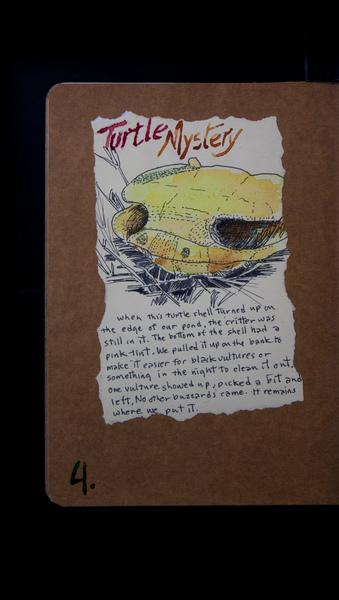 Turtle Mystery
When this turtle shell turned up on
the edge of our pond, the critter was
still in it. The bottom of the shell had a
pink tint. We pulled it up on the bank to
make it easier for black vultures or
something in the night to clean it out.
One vulture showed up, picked a bit and
left. No other buzzards came. It remains
where we put it.
4.